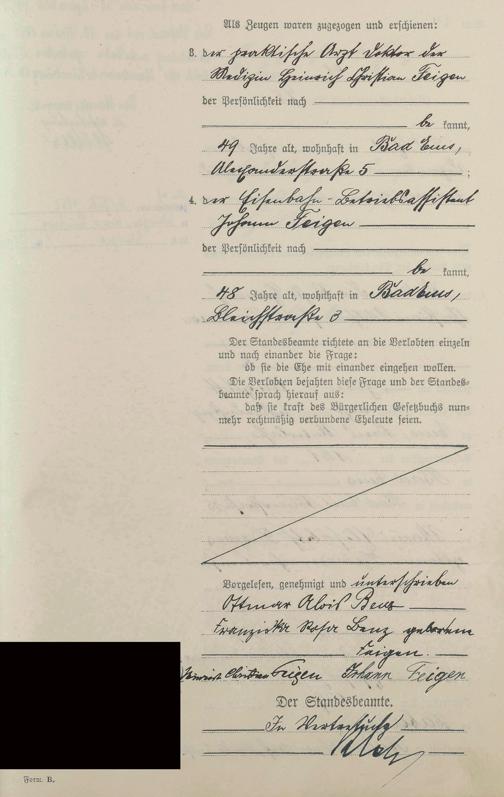 Als Zeugen waren zugezogen und erschienen:
3. der praktische Arzt Doktor der
Medizin Heinrich Christian Feigen
der Persönlichkeit nach
be kannt,
49 Jahre alt, wohnhaft in Bad Ems,
Alexanderstraße 5 ;
4. der Eisenbahn-Betriebsassistent
Johann Feigen
der Persönlichkeit nach
be kannt,
48 Jahre alt, wohnhaft in Bad Ems,
Bleichstraße 3
Der Standesbeamte richtete an die Verlobten einzeln
und nach einander die Frage:
ob sie die Ehe mit einander eingehen wollen.
Die Verlobten bejahten diese Frage und der Standes-
beamte sprach hierauf aus:
daß sie kraft des Bürgerlichen Gesetzbuchs nun-
mehr rechtmäßig verbundene Eheleute seien.
Vorgelesen, genehmigt und unterschrieben
Ottmar Alois Benz
Franziska Rosa Benz geborene
Feigen.
Heinrich Christian Feigen Johann Feigen
Der Standesbeamte.
In Vertretung
Form. B.